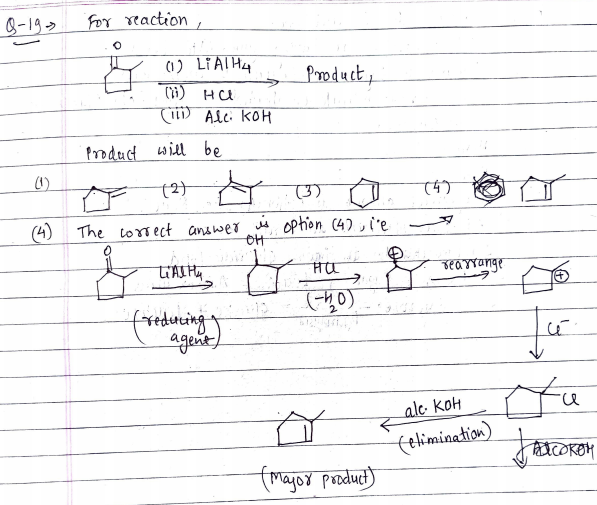 Q-19→ For reaction,
O
(i) LiAlH4
(ii) HCl
(iii) Alc. KOH
Product,
Product will be
(1) (2) (3) (4)
(4) The correct answer is option (4), i.e →
O LiAlH4 OH HCl ⊕ rearrange ⊕
(reducing agent) (-H2O)
Cl⁻
Cl
alc. KOH
(elimination)
(Major product)